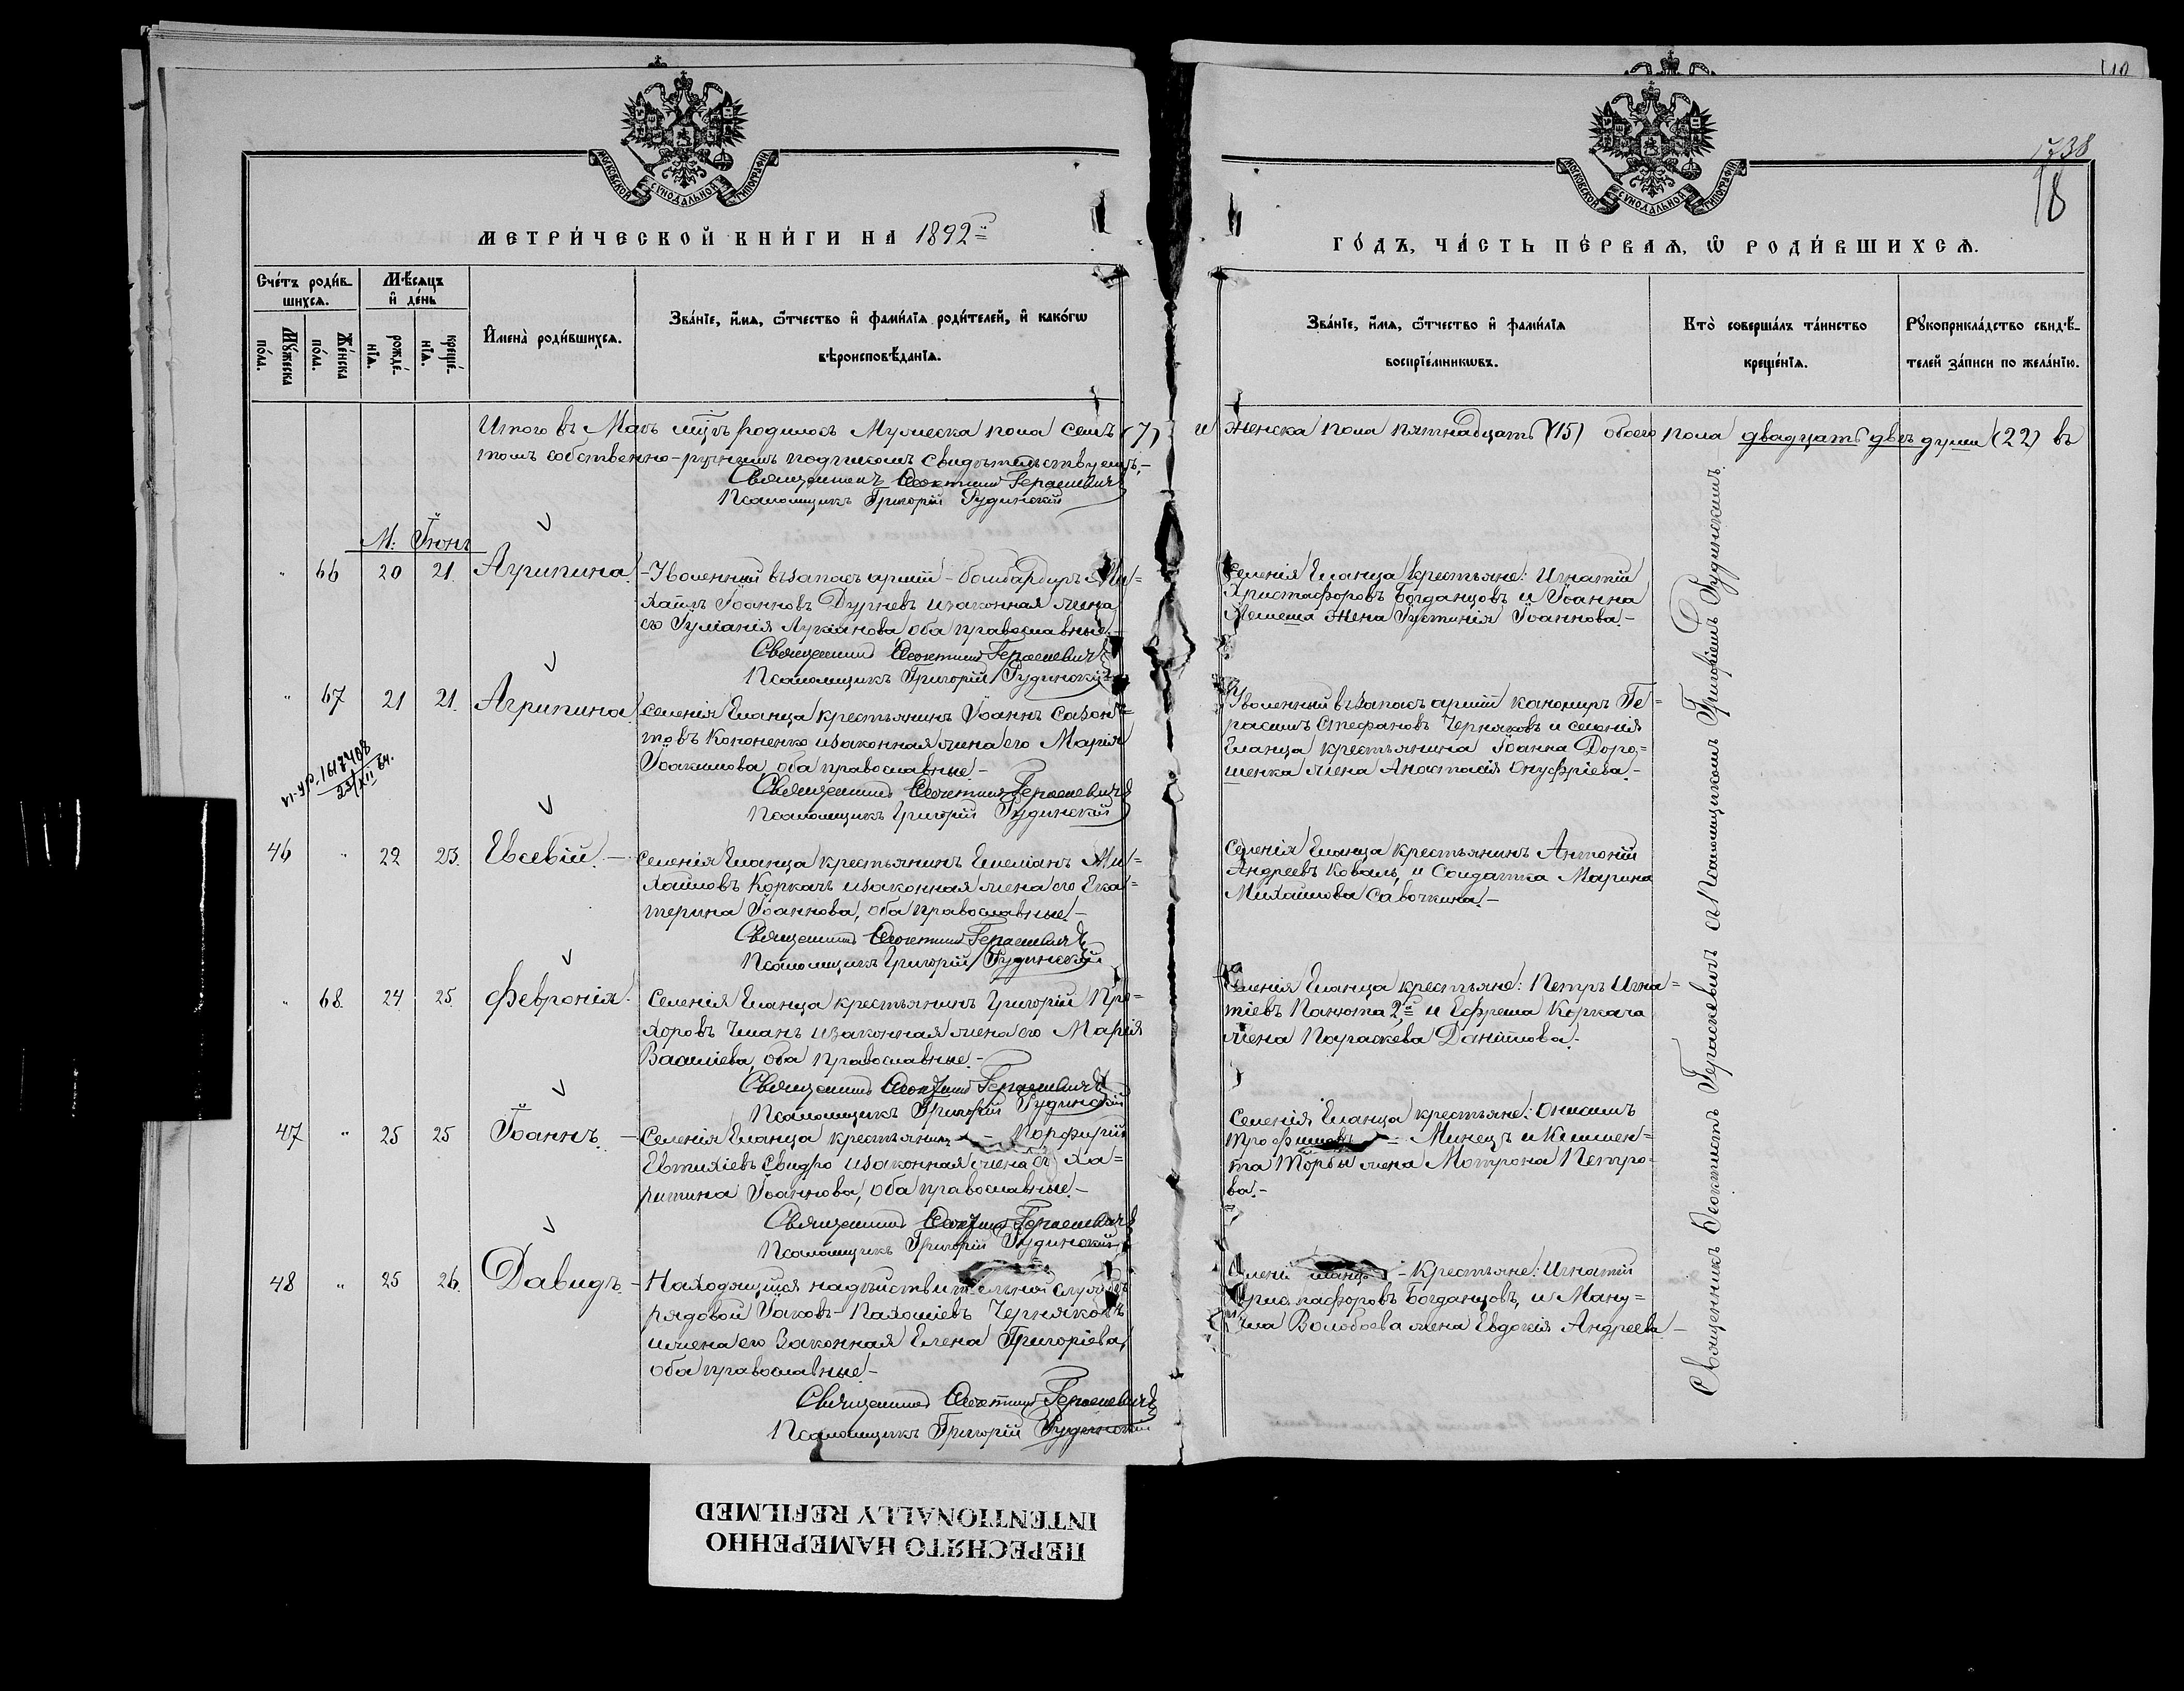 1738
18
МОСКОВСКОЙ СѴНОДАЛЬНОЙ ТИПОГРАФІИ
МОСКОВСКОЙ СѴНОДАЛЬНОЙ ТИПОГРАФІИ
МЕТРИ́ЧЕСКОЙ КНИ́ГИ НА 1892й
ГО́ДЪ, ЧА́СТЬ ПЕ́РВАЯ, Ѿ РОДИ́ВШИХСЯ.
Сче́тъ роди́в-
шихся.
Мꙋ́жеска
по́ла.
Же́нска
по́ла.
Мѣ́сяцъ
и҆ де́нь
рожде́-
нїя.
креще́-
нїя.
И҆мена̀ роди́вшихся.
Зва́нїе, и҆́мя, ѻ҆́тчество и҆ фами́лїя роди́телей, и҆ како́гѡ
вѣроисповѣ́данїя.
Зва́нїе, и҆́мя, ѻ҆́тчество и҆ фами́лїя
воспрїе́мникѡвъ.
Кто̀ соверша́лъ та́инство
креще́нїя.
Рꙋкоприкла́дство свидѣ́-
телей за́писи по жела́нїю.
Итого въ Маѣ мцѣ родилось Мужеска пола семь (7) и Женска пола пятнадцать (15) обоего пола двадцать двѣ души (22) въ
томъ собственно-ручнымъ подписомъ свидѣтельствуемъ,-
Священникъ Ѳеоктистъ Герасевичъ
Псаломщикъ Григорій Рудинскій
М: Іюнь
" 66 20 21. Агрипина. - Уволенный въ запасъ арміи - бомбардиръ Ми=
хаилъ Іоанновъ Дурневъ и законная жена
его Іуліанія Лукіанова, оба православные.-
Священникъ Ѳеоктистъ Герасевичъ
Псаломщикъ Григорій Рудинскій
Селенія Еланца крестьяне: Игнатій
Христофоровъ Богданцовъ и Іоанна
жена Іустинія Іоаннова.-
" 67 21 21. Агрипина. Селенія Еланца крестьянинъ Іоаннъ Созон=
товъ Кононенко и законная жена его Марія
Іоакимова, оба православные.-
Священникъ Ѳеоктистъ Герасевичъ
Псаломщикъ Григорій Рудинскій
Уволенный въ запасъ арміи канониръ Ге=
расимъ Стефановъ Черняковъ и селенія
Еланца крестьянина Іоанна Доро=
шенка жена Анастасія Онуфріева.-
VI-УР-1617408
23/XII 64.
46 " 22 23. Евсевій. - Селенія Еланца крестьянинъ Емеліанъ Ми=
хайловъ Коркачъ и законная жена его Ека=
терина Іоаннова, оба православные.-
Священникъ Ѳеоктистъ Герасевичъ
Псаломщикъ Григорій Рудинскій
Селенія Еланца крестьянинъ Антоній
Андреевъ Коваль, и Солдатка Марина
Михайлова Савочкина.-
" 68. 24 25 Февронія. Селенія Еланца крестьянинъ Григорій Про=
хоровъ и законная жена его Марія
Василіева, оба православные.-
Священникъ Ѳеоктистъ Герасевичъ
Псаломщикъ Григорій Рудинскій
Селенія Еланца крестьяне: Петръ Игна=
тіевъ Панюта 2й и Ефрема Коркача
жена Параскева Даніилова.-
47 " 25 25 Іоаннъ. - Селенія Еланца крестьянинъ - Порфирій
Евтихіевъ Свидро и законная жена его Ха=
ритина Іоаннова, оба православные.-
Священникъ Ѳеоктистъ Герасевичъ
Псаломщикъ Григорій Рудинскій
Селенія Еланца крестьяне: Онисимъ
Трофимовъ - Минецъ и Климен=
та Торбы жена Мотрона Петро=
ва.-
48 " 25 26. Давидъ. - Находящійся на дѣйствительной службѣ
рядовой Іаковъ Пахоміевъ Черняковъ
и жена его законная Елена Григоріева,
оба православные.-
Священникъ Ѳеоктистъ Герасевичъ
Псаломщикъ Григорій Рудинскій
Селенія Еланца - Крестьяне: Игнатій
Христофоровъ Богданцовъ, и Ману=
ила Волобоева жена Евдокія Андреева -
Священникъ Ѳеоктистъ Герасевичъ съ Псаломщикомъ Григоріемъ Рудинскимъ.
ПЕРЕСНЯТО НАМЕРЕННО
INTENTIONALLY REFILMED